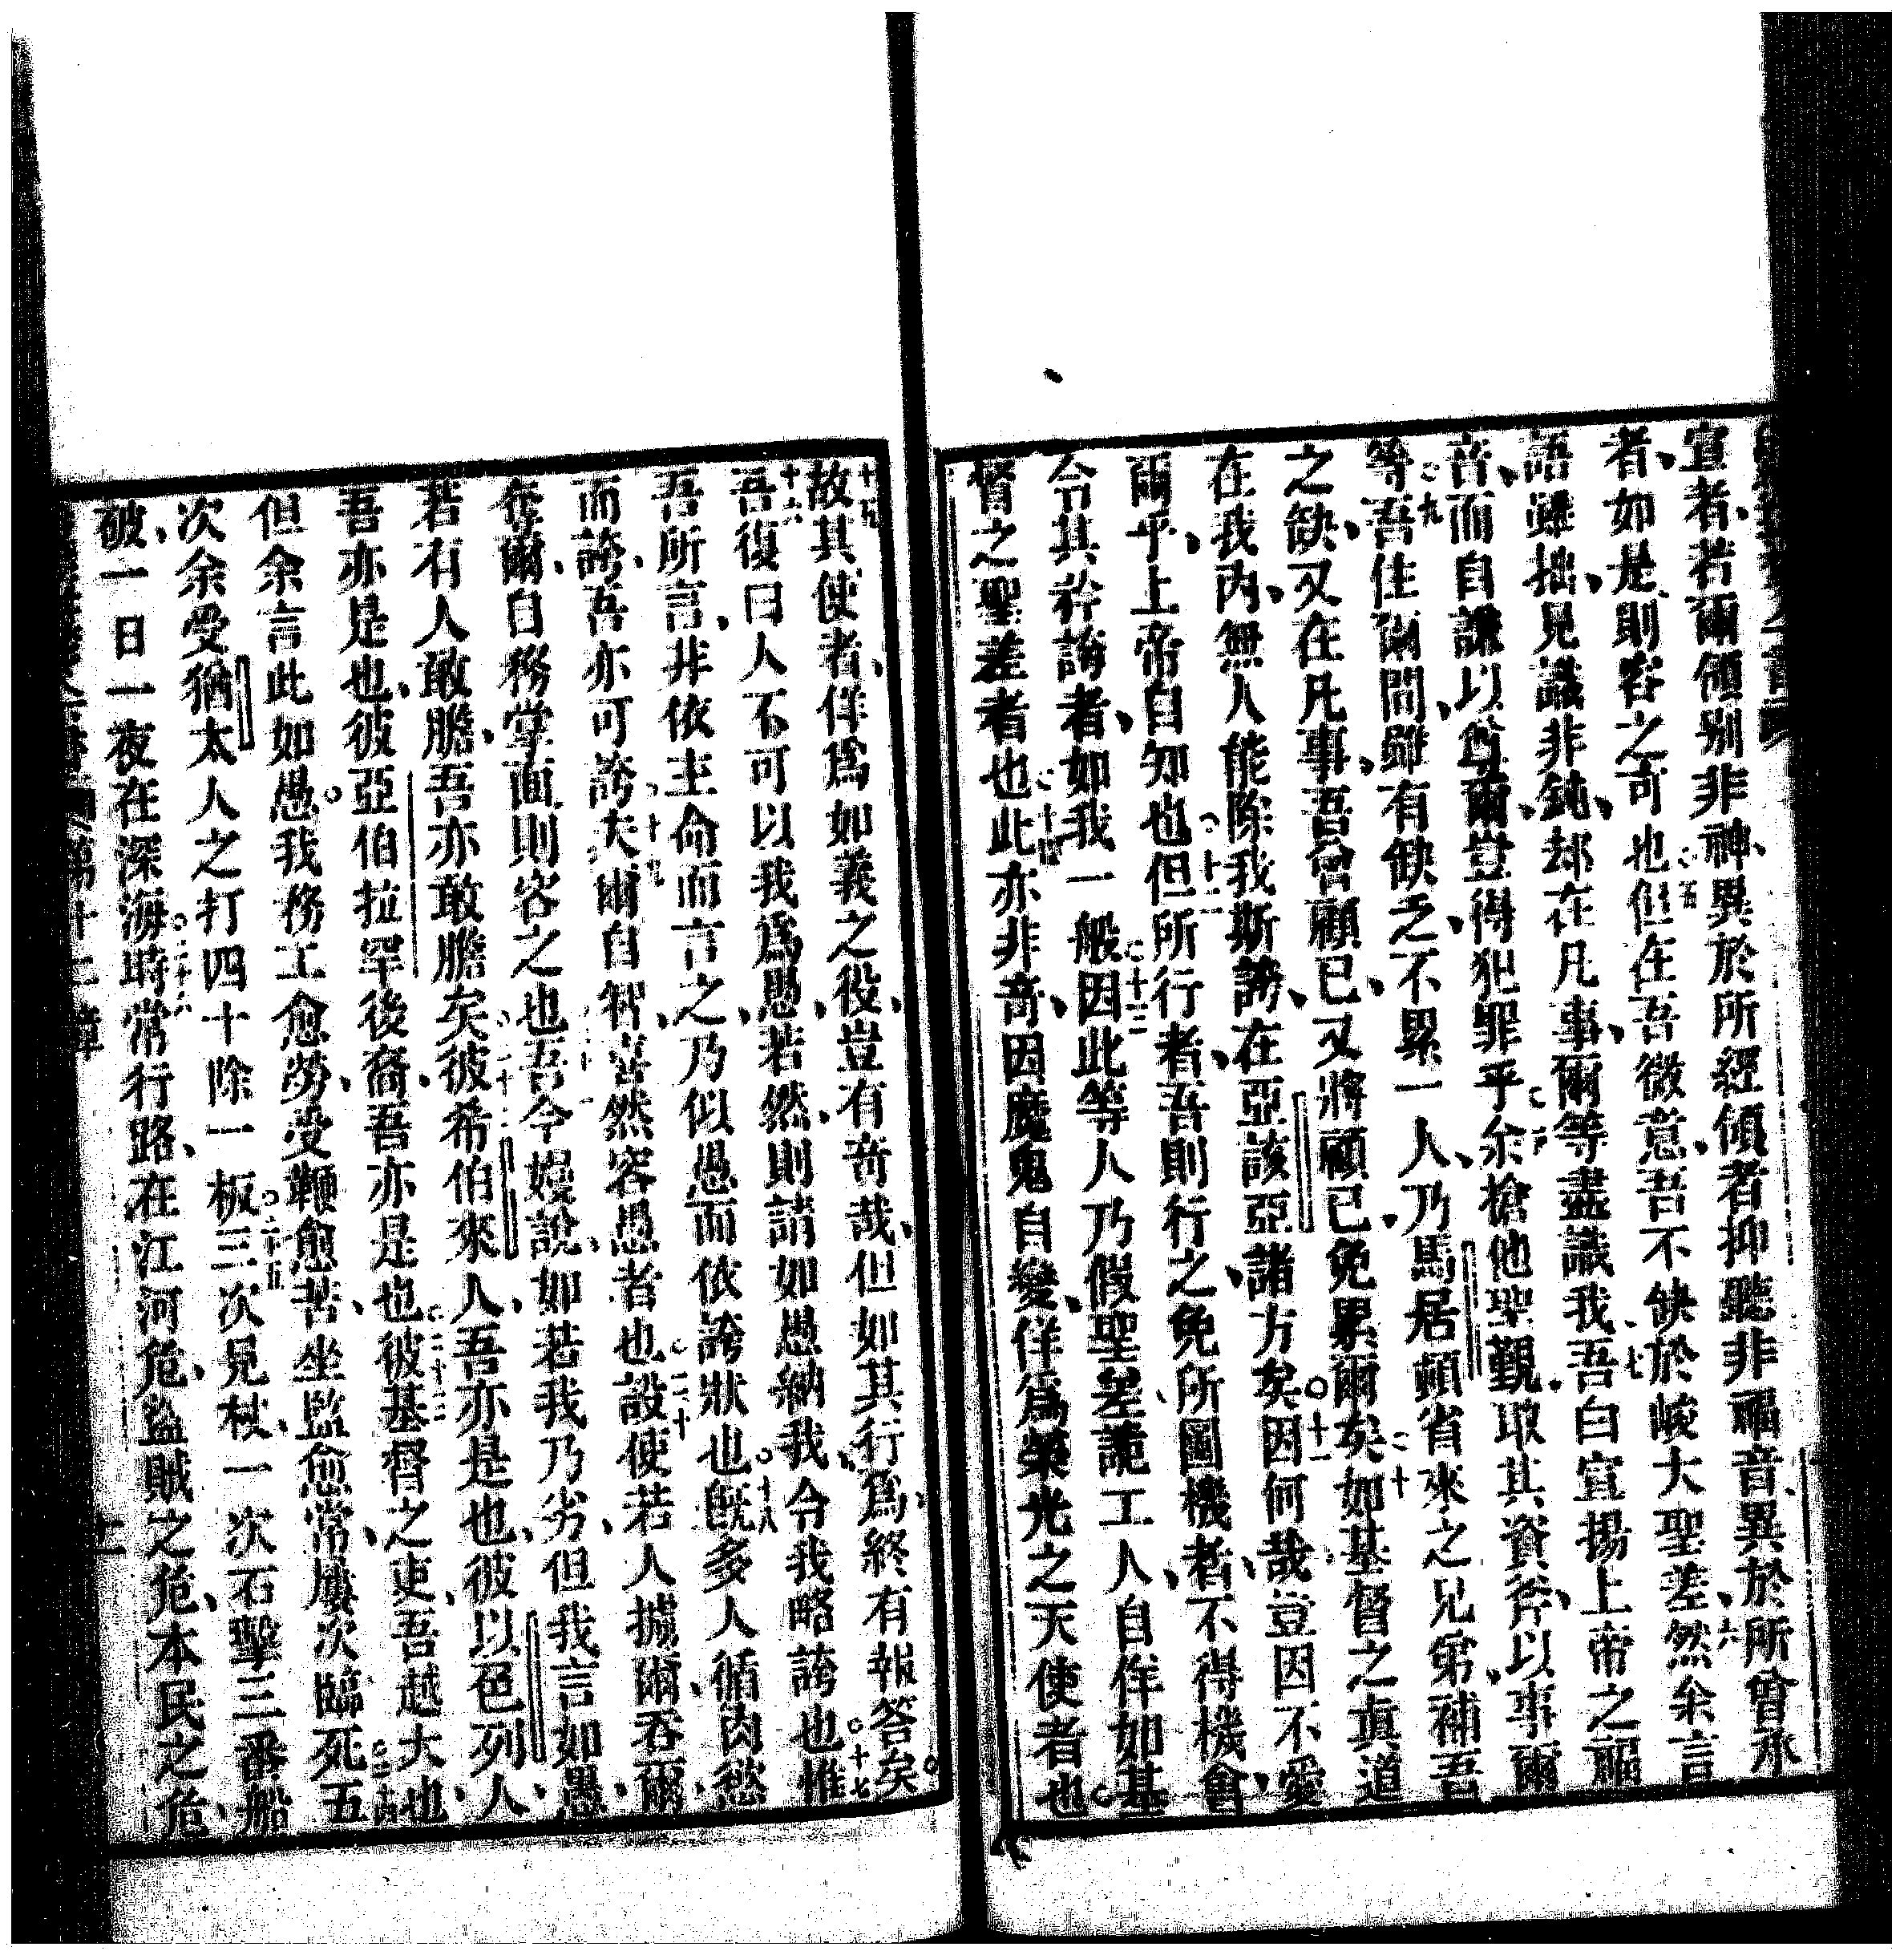 宣者、若爾傾别非神、異於所經傾者抑聽非福音、異於所曾承
者、如是、則容之可也○五但在吾微意、吾不缺於峻大聖差、○六然余言
語雖拙、見識非鈍、却在凡事、爾等盡識我○七吾白宣揚上帝之福
音、而自謙以尊爾、豈得犯罪乎○八余搶他聖覲、取其資斧、以事爾
等○九吾住爾間、雖有缺乏、不累一人、乃馬居頓省來之兄弟、補吾
之缺、又在凡事、吾曾顧已、又將顧已、免累爾矣○十如基督之眞道
在我內、無人能除我斯誇、在亞該亞諸方矣○十一因何哉、豈因不愛
爾乎、上帝自知也○十二但所行者、吾則行之、免所圖機者、不得機會、
令其矜誇者、如我一般○十三因此等人乃假聖差、詭工人、自佯如基
督之聖差者也○十四此亦非奇、因魔鬼自變、佯爲榮光之天使者也○
十五故其使者、佯爲如義之役、豈有奇哉、但如其行爲、終有報答矣○
十六吾復曰、人不可以我爲愚、若然、則請如愚納我、令我略誇也○十七惟
吾所言、非依主命而言之、乃似愚而依誇狀也○十八旣多人循肉慾
而誇、吾亦可誇○十九夫爾自智、喜然容愚者也○二十設使若人擄爾、吞爾、
奪爾、自務掌面、則容之也○二十一吾今嫚說、如若我乃劣、但我言如愚、
若有人敢膽、吾亦敢膽矣○二十二彼希伯來人、吾亦是也、彼以色列人、
吾亦是也、彼亞伯拉罕後裔、吾亦是也○二十三彼基督之吏、吾越大也、
但余言此如愚○我務工愈勞、受鞭愈苦、坐監愈常、屢次臨死○二十四五
次余受猶太人之打四十除一板○二十五三次見杖、一次石擊、三番船
破、一日一夜在深海時○二十六常行路、在江河危、盜賊之危、本民之危、